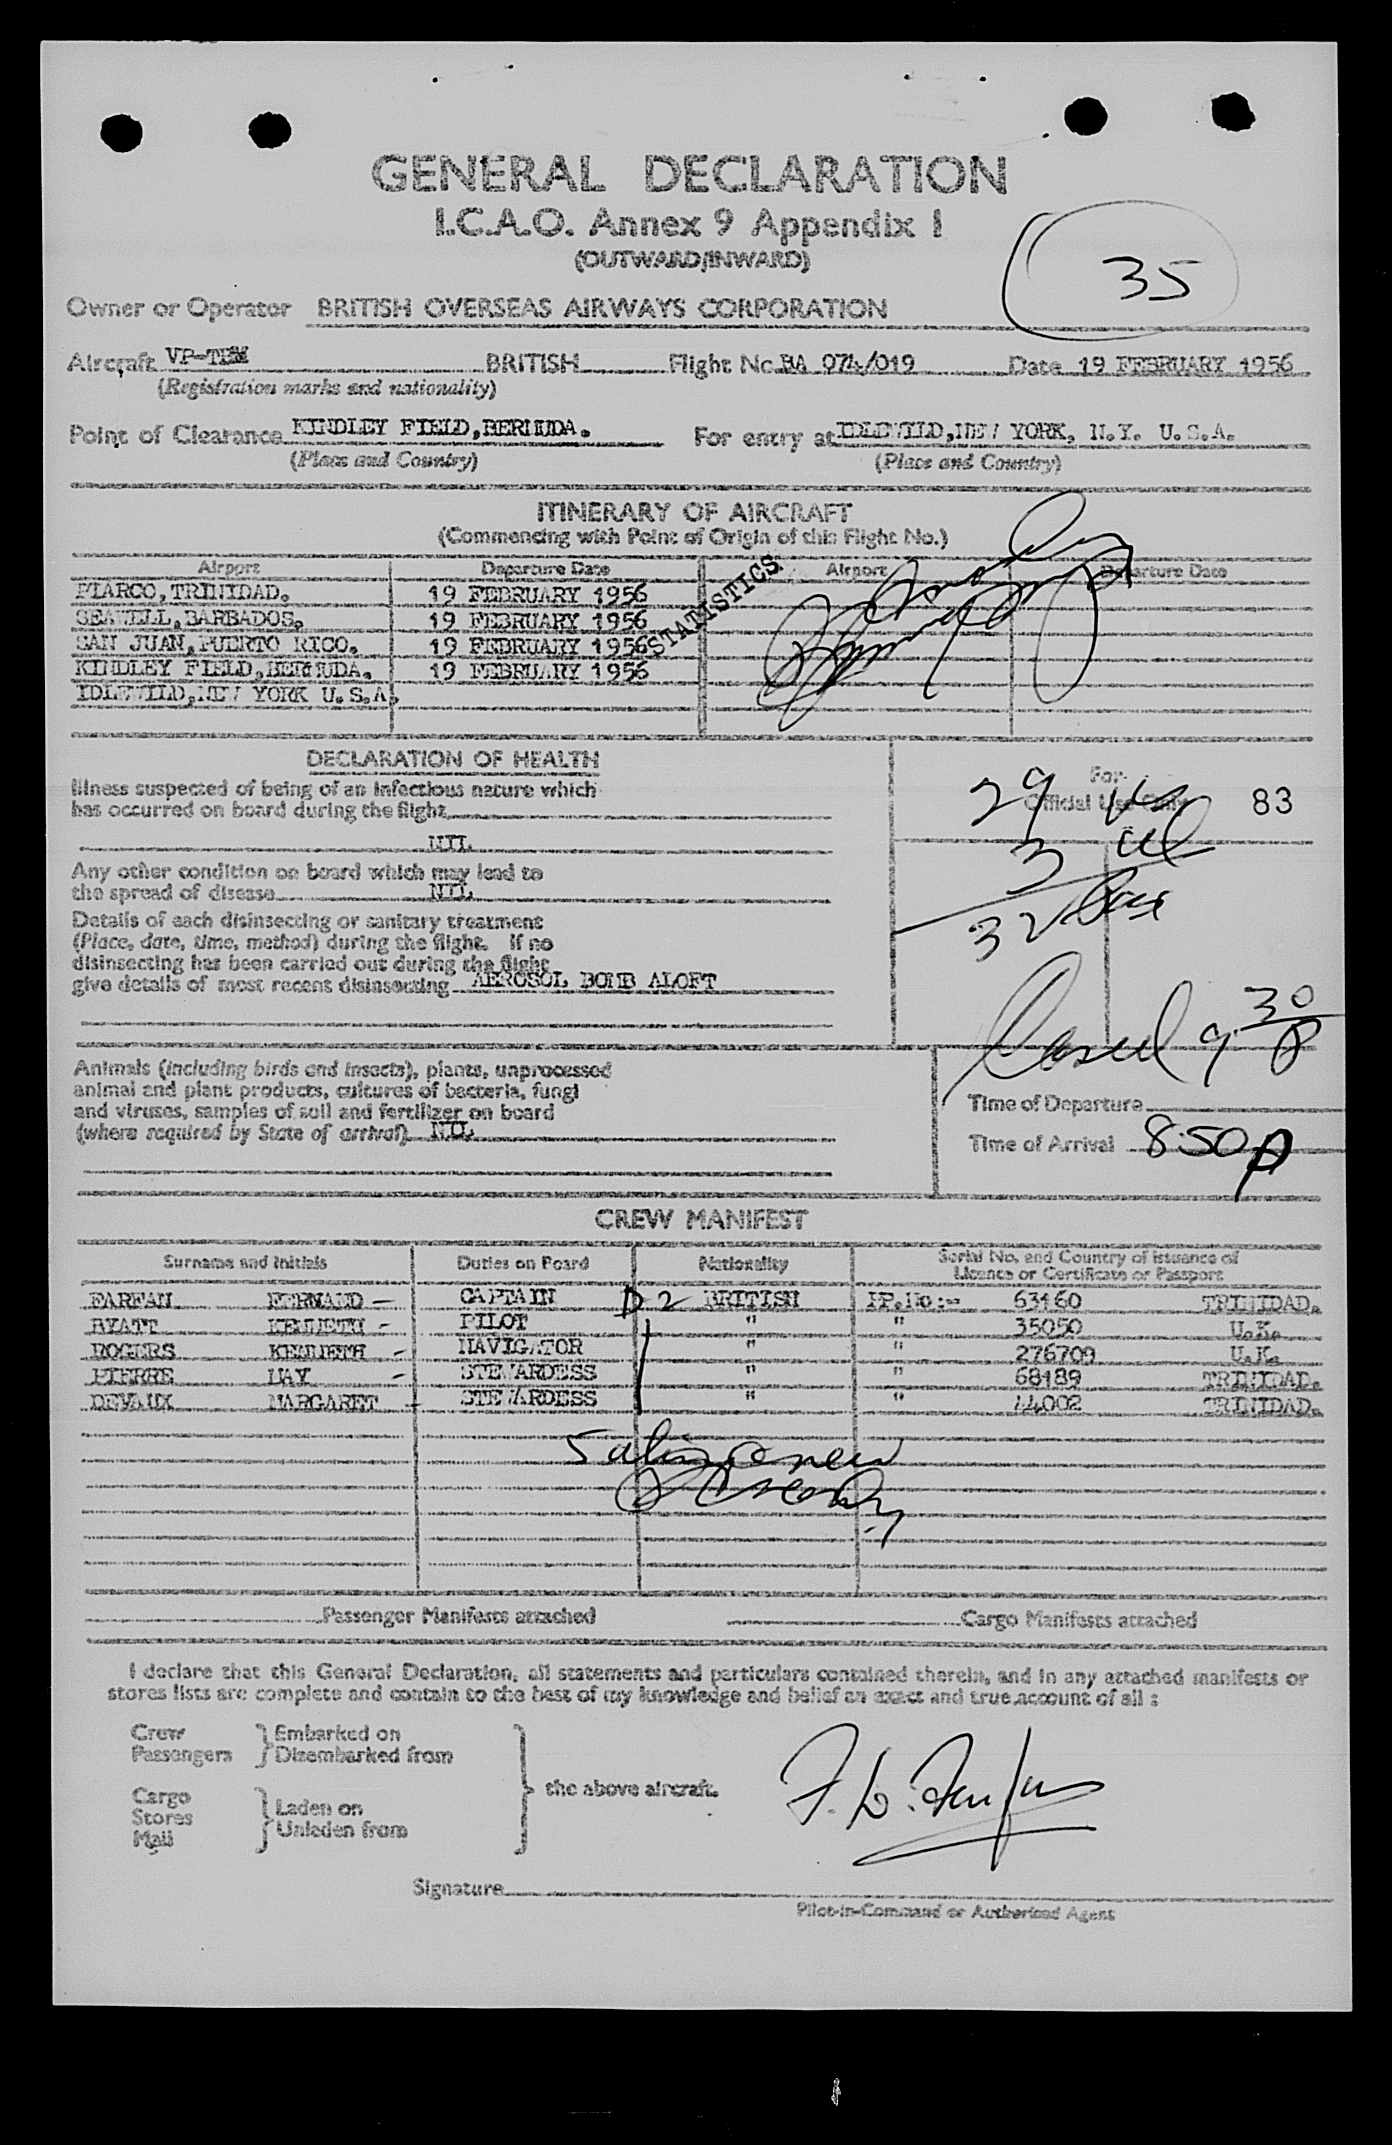 GENERAL DECLARATION
I.C.A.O. Annex 9 Appendix I
(OUTWARD/INWARD)
35
Owner or Operator BRITISH OVERSEAS AIRWAYS CORPORATION
Aircraft BRITISH Flight No. BA 074/019 Date 19 FEBRUARY 1956
(Registration marks and nationality)
Point of Clearance KINDLEY FIELD, BERMUDA. For entry at IDLEWILD, NEW YORK, N.Y. U.S.A.
(Place and Country) (Place and Country)
ITINERARY OF AIRCRAFT
(Commencing with Point of Origin of this Flight No.)
Airport Departure Date Airport Departure Date
PIARCO, TRINIDAD. 19 FEBRUARY 1956
SEAWELL, BARBADOS. 19 FEBRUARY 1956
SAN JUAN, PUERTO RICO. 19 FEBRUARY 1956
KINDLEY FIELD, BERMUDA. 19 FEBRUARY 1956
IDLEWILD, NEW YORK U.S.A.
STATISTICS
DECLARATION OF HEALTH
Illness suspected of being of an infectious nature which
has occurred on board during the flight
NIL
Any other condition on board which may lead to
the spread of disease NIL
Details of each disinsecting or sanitary treatment
(Place, date, time, method) during the flight. If no
disinsecting has been carried out during the flight
give details of most recent disinsecting AEROSOL BOMB ALOFT
For
Official Use Only
83
29
3
32
9 30 P
Animals (including birds and insects), plants, unprocessed
animal and plant products, cultures of bacteria, fungi
and viruses, samples of soil and fertilizer on board
(where required by State of arrival) NIL
Time of Departure
Time of Arrival 8.50 p
CREW MANIFEST
Surname and Initials Duties on Board Nationality Serial No. and Country of Issuance of
Licence or Certificate or Passport
FARFAN CAPTAIN D 2 BRITISH PP.No:- 63160 TRINIDAD.
HYATT KENNETH - PILOT " " 35050 U.K.
ROGERS KENNETH - NAVIGATOR " " 276709 U.K.
PIERRE MAY - STEWARDESS " " 68189 TRINIDAD.
DEVAUX MARGARET - STEWARDESS " " 44002 TRINIDAD.
Passenger Manifests attached Cargo Manifests attached
I declare that this General Declaration, all statements and particulars contained therein, and in any attached manifests or
stores lists are complete and contain to the best of my knowledge and belief an exact and true account of all :
Crew Embarked on
Passengers Disembarked from
the above aircraft.
Cargo
Stores Laden on
Mail Unladen from
Signature
Pilot-in-Command or Authorised Agent